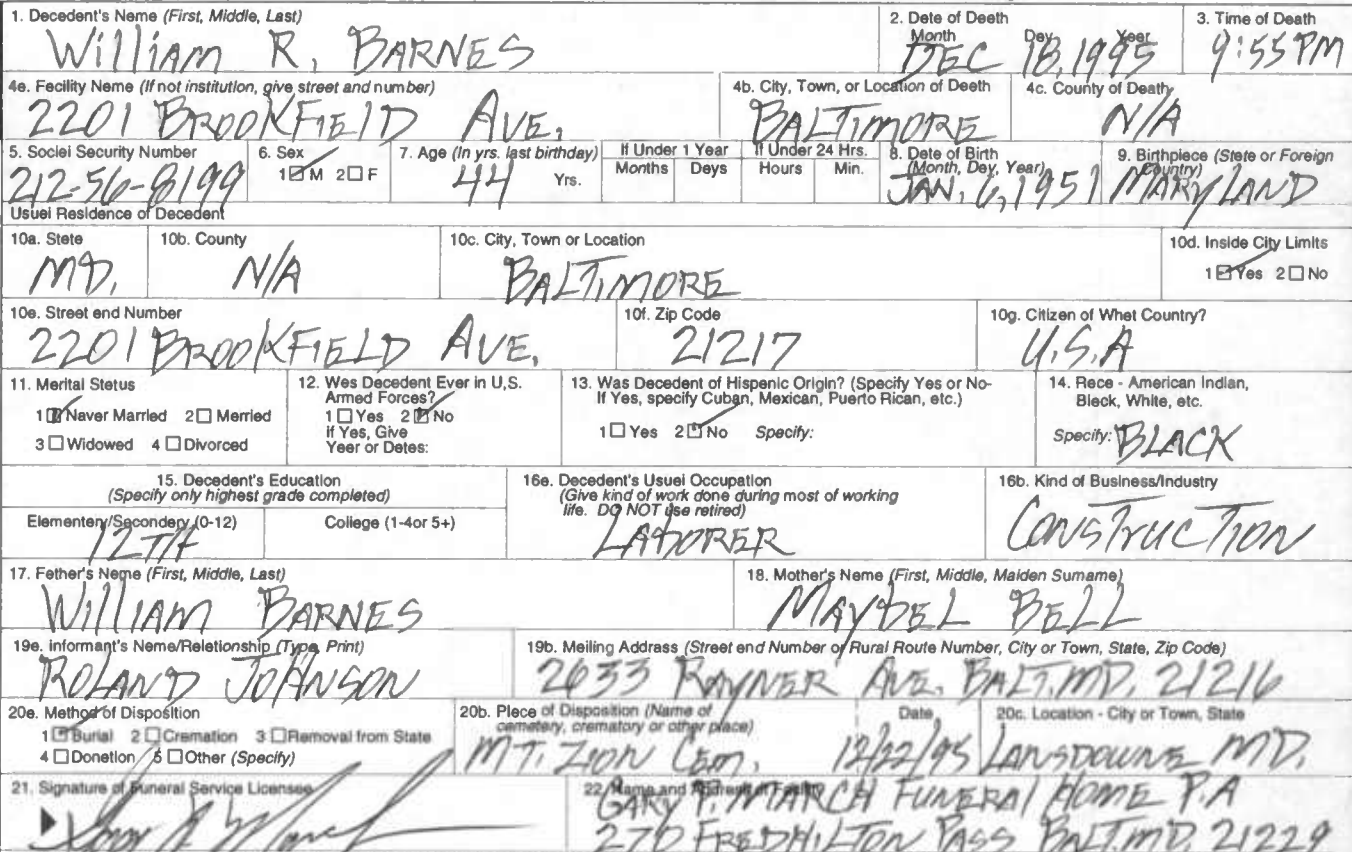 1. Decedent's Name (First, Middle, Last)
William R. BARNES
2. Dete of Deeth
Month Dey Year
DEC 18, 1995
3. Time of Death
9:55 PM
4e. Fecility Name (If not institution, give street and number)
2201 BROOKFIELD AVE,
4b. City, Town, or Location of Deeth
BALTIMORE
4c. County of Death
N/A
5. Sociei Security Number
212-56-8199
6. Sex
1☑M 2☐F
7. Age (In yrs. last birthday)
44 Yrs.
If Under 1 Year
Months Deys
If Under 24 Hrs.
Hours Min.
8. Date of Birth
(Month, Dey, Year)
JAN, 6, 1951
9. Birthpiece (Stete or Foreign
Country)
MARYLAND
Usuei Residence of Decedent
10a. Stete
MD.
10b. County
N/A
10c. City, Town or Location
BALTIMORE
10d. Inside City Limits
1☑Yes 2☐No
10e. Street end Number
2201 BROOKFIELD AVE,
10f. Zip Code
21217
10g. Citizen of Whet Country?
U.S.A
11. Meritai Stetus
1☑Naver Married 2☐Merried
3☐Widowed 4☐Divorced
12. Wes Decedent Ever in U.S.
Armed Forces?
1☐Yes 2☑No
If Yes, Give
Yeer or Detes:
13. Was Decedent of Hispenic Origin? (Specify Yes or No-
If Yes, specify Cuban, Mexican, Puerto Rican, etc.)
1☐Yes 2☑No Specify:
14. Rece - American Indian,
Bleck, White, etc.
Specify: BLACK
15. Decedent's Education
(Specify only highest grade completed)
Elementery/Secondery (0-12)
12TH
College (1-4or 5+)
16e. Decedent's Usuei Occupation
(Give kind of work done during most of working
life. DO NOT use retired)
LABORER
16b. Kind of Business/Industry
CONSTRUCTION
17. Fether's Neme (First, Middle, Last)
William BARNES
18. Mother's Name (First, Middle, Maiden Surname)
MAYBEL BELL
19e. Informant's Neme/Reletionship (Type, Print)
ROLAND JOHNSON
19b. Meiling Address (Street end Number or Rural Route Number, City or Town, State, Zip Code)
2633 RAYNER AVE. BALT. MD. 21216
20e. Method of Disposition
1☑Burial 2☐Cremation 3☐Removal from State
4☐Donetion 5☐Other (Specify)
20b. Plece of Disposition (Name of
cemetery, crematory or other place)
MT. ZION CEM.
Date
12/22/95
20c. Location - City or Town, State
LANSDOWNE MD.
21. Signature of Funeral Service Licensee
22. Name and Address of Facility
GARY P. MARCH FUNERAL HOME P.A
270 FREDHILTON PASS BALT. MD. 21229